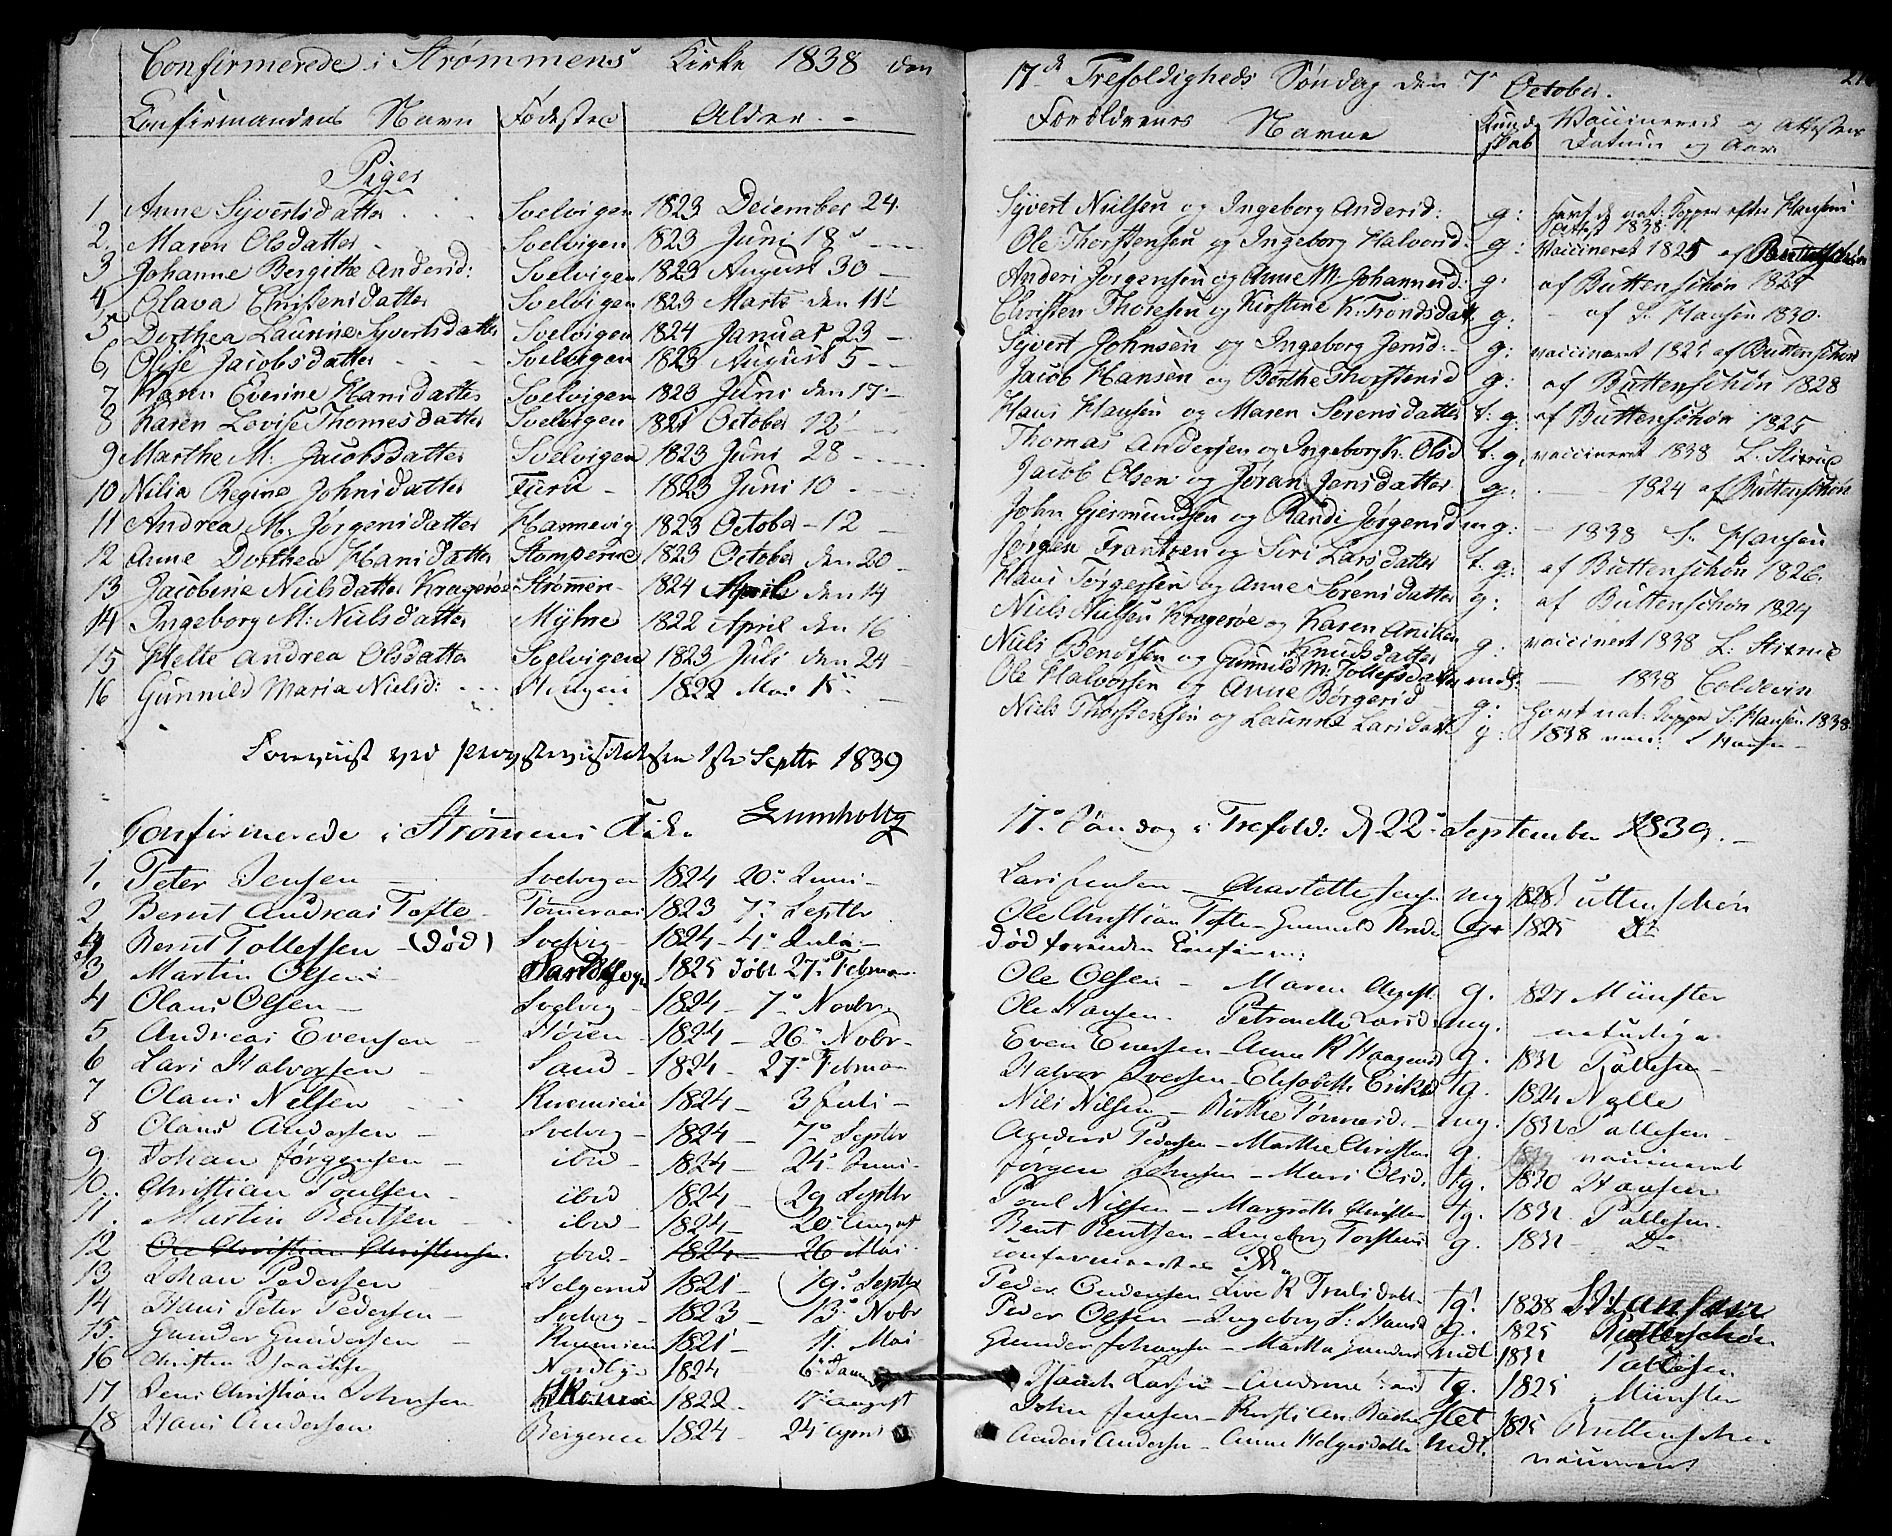 Confirmerede i Strømmens Kirke 1838 den
Confirmandens Navn Fødested Alder.
Piger
1. Anne Syvertsdatter Svelvigen 1823 December 24.
2. Maren Olsdatter Svelvigen 1823 Juni 18
3 Johanne Bergithe Andersd: Svelvigen 1823 August 30
4 Olava Christensdatter Svelvigen 1823 Marts den 11
5 Dorthea Laurine Syvertsdatter Svelvigen 1824 Januar 23
6, Olise Jacobsdatter Svelvigen 1823 August 5
7 Karen Everine Hansdatter Svelvigen 1823 Juni den 17
8 Karen Lovise Thomesdatter Svelvigen 1821 October 12
9 Marthe M: Jacobsdatter Svelvigen 1823 Juni 28
10 Nilia Regine Johnsdatter 1823 Juni 10
11 Andrea M. Jørgensdatter 1823 October 12
12 Anne Dorthea Hansdatter Stomperne 1823 October den 20
13 Jacobine Nielsdatter Kragerøe Strømen 1824 April den 14
14 Ingeborg M: Nielsdatter Myhre 1822 April den 16
15 Helle Andrea Olsdatter Svelvigen 1823 Juli den 24
16 Gunnild Maria Nielsd: 1822 Mai
Foreviist ved Provstevisitatsen 1ste Septbr 1839
Lumholtz
Confirmerede i Strømens Kirke
1. Peter Jensen Svelvigen 1824 20 Juni
2 Bernt Andreas Tofte 1823 7 Septbr
Bernt Tollefsen (død) Svelvig 1824 4 Julii
3 Martin Olsen 1825 døbt 27 Februar
4 Olaus Olsen Svelvig 1824 7 Novbr
5 Andreas Evensen Høien 1824 26 Novbr
6 Lars Halvorsen Sand 1824 27 Februar
7 Olaus Nilsen 1824 3 Juli
8 Olaus Andersen Svelvig 1824 7 Septbr
9 Johan Jørgensen ibid 1824 24 Juni
10. Christian Poulsen ibid 1824 29 Septbr
11. Martin Bentsen ibid 1824 20 August
12 Ole Christian Christensen ibid 1824 26 Mai
13 Johan Pedersen 1821 19 Septbr
14 Hans Peter Pedersen Svelvig 1823 13 Novbr
15. Gunder Gundersen 1821 11. Mai
16 Christen 1824 6
17 Jens Christian Johnsen 1822 17 August
18 Hans Andersen Bergerne 1824 24
17de Trefoldigheds Søndag den 7 October.
Forældrenes Navne Kundskab Vaccinerede og Attestens Datum og Aar
Syvert Nielsen og Ingeborg Andersd: g: havt de nat: Kopper efter Hansens Attest 1838
Ole Thorstensen og Ingeborg Halvorsd. g: vaccineret 1825 af Buttenschøn
Anders Jørgensen og Anne M. Johannesd: g: af Buttenschøn 1825
Christen Thoresen og Kirstine K. Trondsdatt g: af S. Hansen 1830.
Syvert Johnsen og Ingeborg Jensd: g: vaccineret 1825 af Buttenschøn
Jacob Hansen og Berthe Thorstensd g: af Buttenschøn 1828
Hans Hansen og Maren Sørensdatter t: g: af Buttenschøn 1825
Thomas Andersen og Ingeborg K. Olsd t: g: vaccineret 1838 L. Stixrud
Jacob Olsen og Jøran Jensdatter g: 1824 af Buttenschøn
John Gjermundsen og Randi Jørgensd mg: 1838 S. Hansen
Jørgen Frantzen og Siri Larsdatter t. g: af Buttenschøn 1826.
Hans Torgersen og Anne Sørensdatter g: af Buttenschøn 1824
Niels Nielsen Kragerøe og Karen Aniken Knudsdatter g: vaccinert 1838 L: Stixrud
Niels Bendtsen og Gunnild M. Tollefsdatter mdt: 1838 Coldevin
Ole Halvorsen og Anne Børgersd g: havt nat: Kopper S. Hansen 1838
Niels Thorstensen og Launne Larsdatt g: 1838 vac: S Hansen
17 Søndag i Trefold: d 22 September 1839.
Lars Jensen Charlotte Jens mg 1828 Buttenschøn
Ole Christian Tofte Gunnild g 1825 Do
død forinden Confirm:
Ole Olsen Maren g. 1827 Münster
Ole Hansen. Petronelle Larsd mg. naturlige
Even Evensen Anne K Haagensd g. 1831 Pallesen
Halvor Iversen Elisabeth Eriksd tg. 1824 Nolle
Nils Nilsen Birthe Tønnesd. mg. 1831 Pallesen
Anders Pedersen Marthe Christens g. vaccineret
Jørgen Johnsen Mari Olsd. tg. 1830 Hansen
Poul Nilsen Margrethe Christens tg. 1831 Pallesen.
Bent Bentsen Ingeborg Torstens g. 1831 Do
confirmeredes ikke
Peder Andersen Live K Truls datt. tg! 1838 S Hansen
Peder Olsen Ingeborg S. Hansd g. 1825 Buttenschøn
Gunder Johansen Martha Gunders mdt 1831 Pallesen
Larsen tg. 1825 Münster
John Jensen slet 1825 Buttenschøn
Anders Andersen Anne Helgesdatter mdt. vaccineret